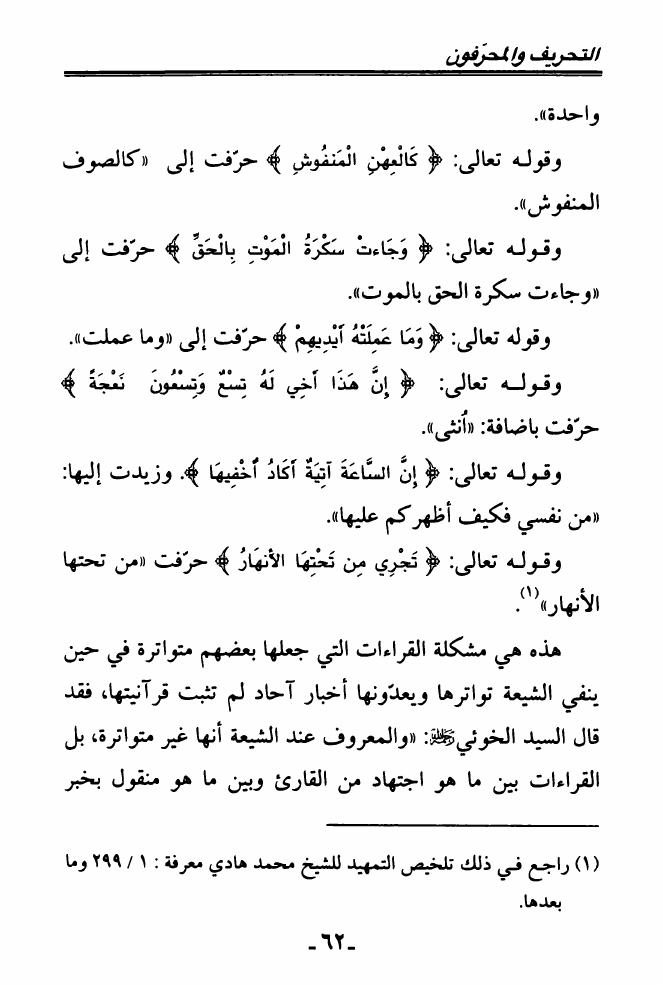 التحريف والمحرّفون
واحدة)).
وقولـه تعالى: ﴿ كَالْعِهْنِ الْمَنفُوشِ ﴾ حرّفت إلى ((كالصوف
المنفوش)).
وقـولـه تعالى: ﴿ وَجَاءتْ سَكْرَةُ الْمَوْتِ بِالْحَقِّ ﴾ حرّفت إلى
((وجاءت سكرة الحق بالموت)).
وقوله تعالى: ﴿ وَمَا عَمِلَتْهُ أَيْدِيهِمْ ﴾ حرّفت إلى ((وما عملت)).
وقولــه تعالى: ﴿ إِنَّ هَذَا أَخِي لَهُ تِسْعٌ وَتِسْعُونَ نَعْجَةً ﴾
حرّفت باضافة: ((أُنثى)).
وقـولـه تعالى: ﴿ إِنَّ السَّاعَةَ آتِيَةٌ أَكَادُ أُخْفِيهَا ﴾. وزيدت إليها:
((من نفسي فكيف أظهركم عليها)).
وقـولـه تعالى: ﴿ تَجْرِي مِن تَحْتِهَا الأَنهَارُ ﴾ حرّفت ((من تحتها
الأنهار))(١).
هذه هي مشكلة القراءات التي جعلها بعضهم متواترة في حين
ينفي الشيعة تواترها ويعدّونها أخبار آحاد لم تثبت قرآنيتها، فقد
قال السيد الخوئي: ((والمعروف عند الشيعة أنها غير متواترة، بل
القراءات بين ما هو اجتهاد من القارئ وبين ما هو منقول بخبر
(١) راجع في ذلك تلخيص التمهيد للشيخ محمد هادي معرفة : ١ / ٢٩٩ وما
بعدها.
ـ ٦٢ ـ